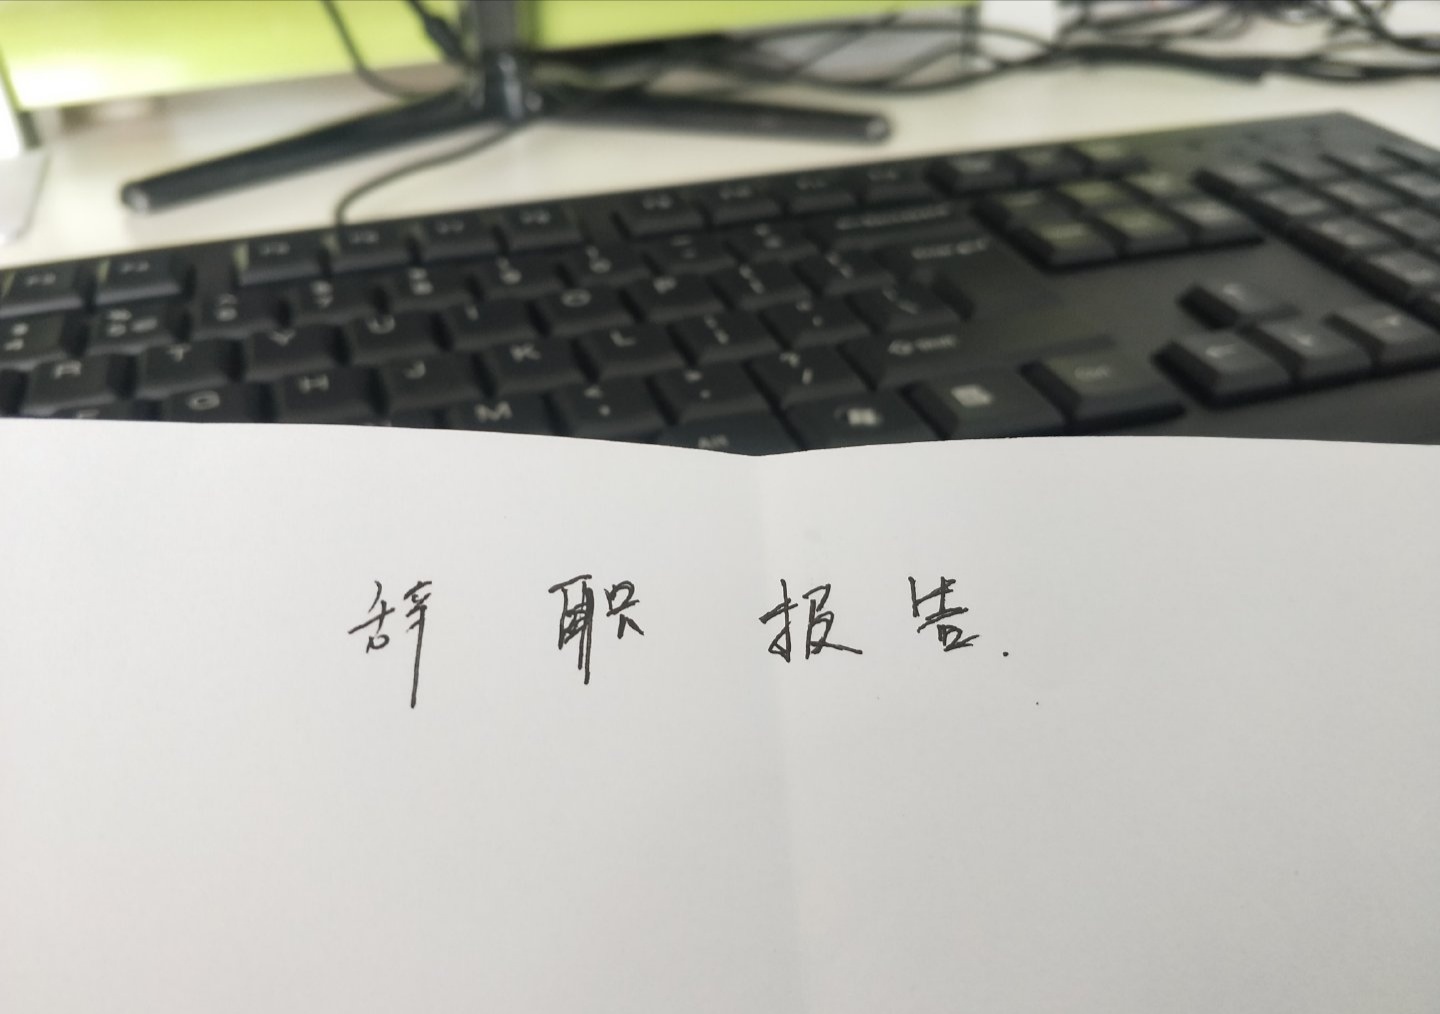 辞职报告.